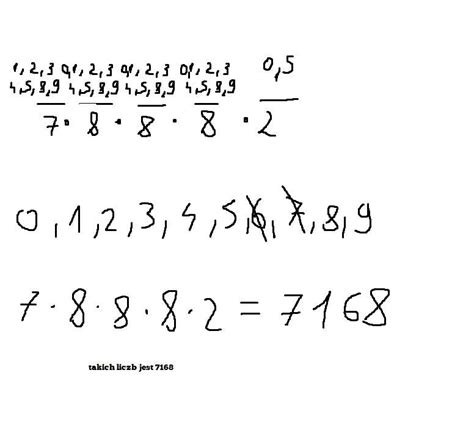 1,2,3 0,1,2,3 0,1,2,3 0,1,2,3 0,5
4,5,8,9 4,5,8,9 4,5,8,9 4,5,8,9
7 · 8 · 8 · 8 · 2
0,1,2,3,4,5,6,7,8,9
7·8·8·8·2=7168
takich liczb jest 7168